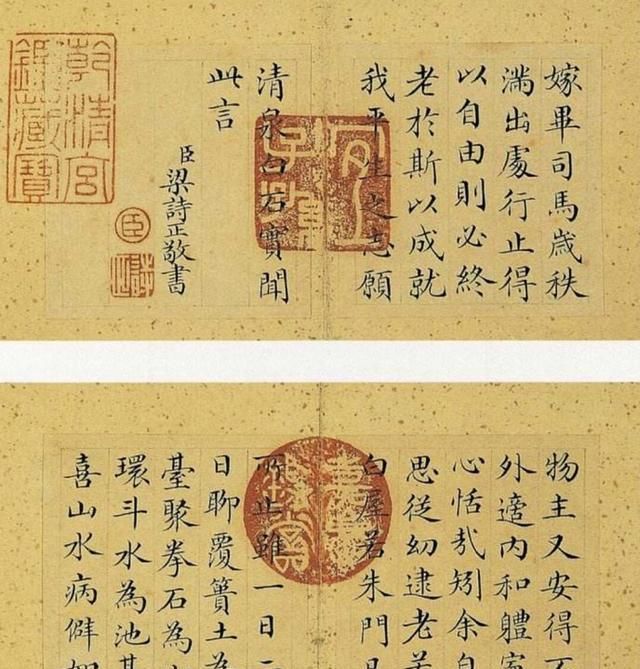 嫁畢司馬歲秩
滿出處行止得
以自由則必終
老於斯以成就
我平生之志願
清泉白石實聞
此言
臣梁詩正敬書
臣
乾清宮
鑑藏寶
宜子孫
物主又安得不
外適內和體寧
心恬哉矧余自
思從幼逮老若
白屋若朱門凡
所止雖一日二
日聊覆簣土為
臺聚拳石為山
環斗水為池其
喜山水病癖如